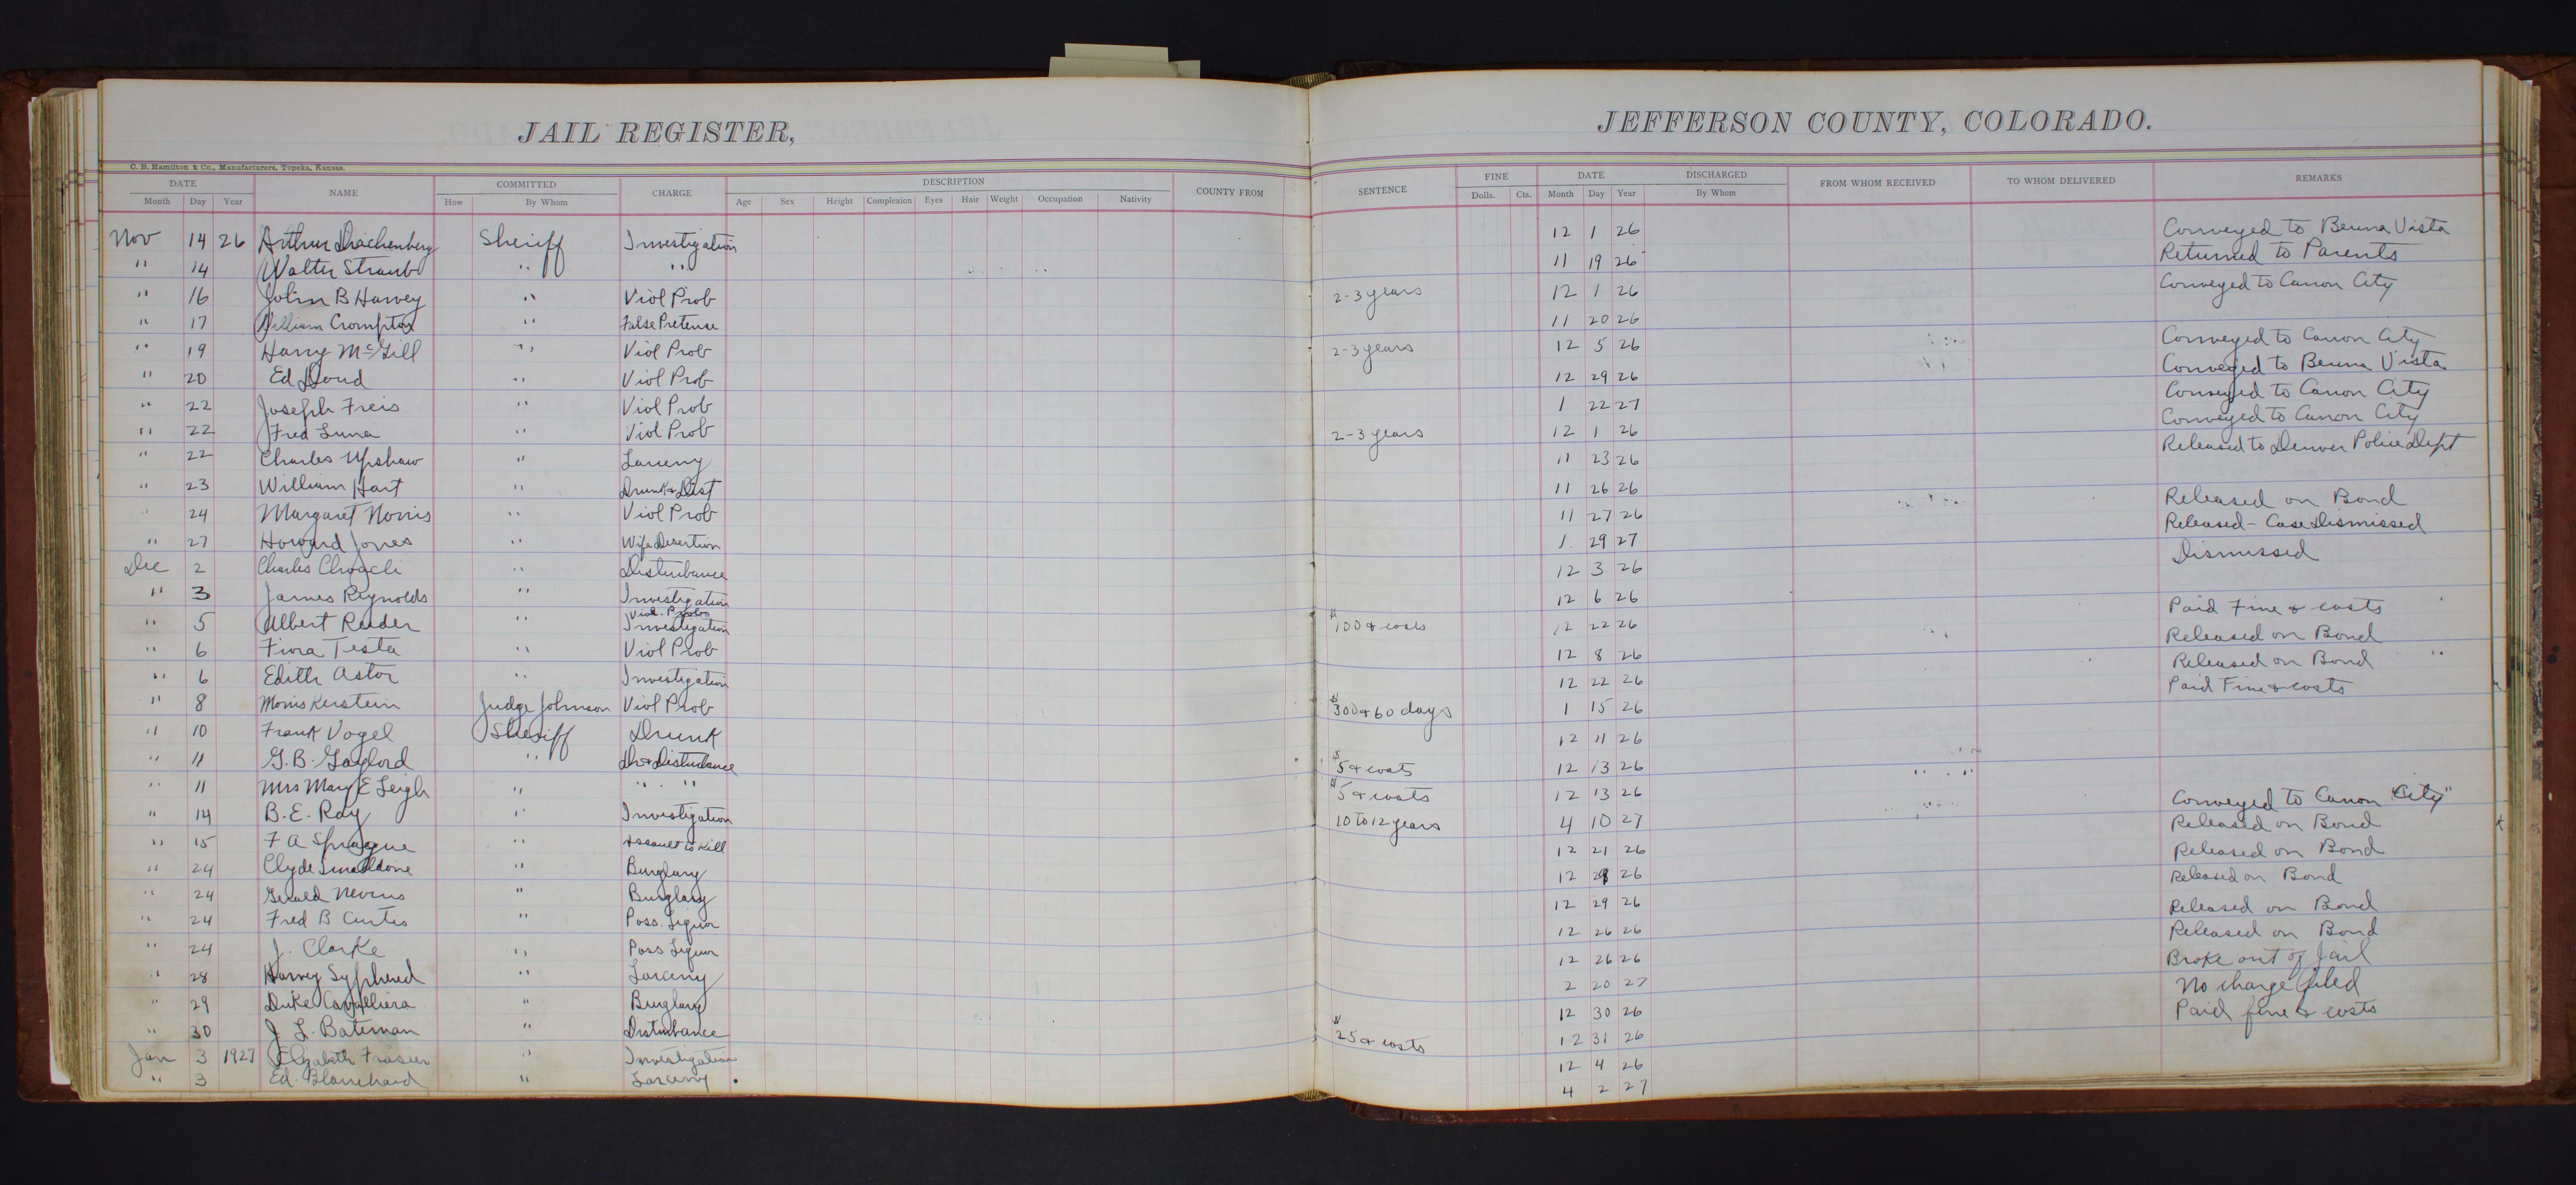 JAIL REGISTER,
JEFFERSON COUNTY, COLORADO.
C. B. Hamilton & Co., Manufacturers, Topeka, Kansas.
DATE NAME COMMITTED CHARGE DESCRIPTION COUNTY FROM SENTENCE FINE DATE DISCHARGED FROM WHOM RECEIVED TO WHOM DELIVERED REMARKS
Month Day Year How By Whom Age Sex Height Complexion Eyes Hair Weight Occupation Nativity Dolls. Cts. Month Day Year By Whom
Nov 14 26 Arthur Sheriff Investigation 12 1 26 Conveyed to Beuna Vista
" 14 Walter Straub " " 11 19 26 Returned to Parents
" 16 John B Harvey " Viol Prob 2-3 years 12 1 26 Conveyed to Canon City
" 17 William Crompton " False Pretense 11 20 26
" 19 Harry McGill " Viol Prob 2-3 years 12 5 26 Conveyed to Canon City
" 20 Ed Doud " Viol Prob 12 29 26 Conveyed to Beuna Vista
" 22 Joseph Freis " Viol Prob 1 22 27 Conveyed to Canon City
" 22 Fred Luna " Viol Prob 2-3 years 12 1 26 Conveyed to Canon City
" 22 Charles Upshaw " Larceny 11 23 26 Released to Denver Police Dept
" 23 William Hart " Drunk & Dist 11 26 26
" 24 Margaret Norris " Viol Prob 11 27 26 Released on Bond
" 27 Howard Jones " Wife Desertion 1 29 27 Released - Case Dismissed
Dec 2 Charles " Disturbance 12 3 26 Dismissed
" 3 James Reynolds " Investigation 12 6 26
" 5 Albert Reeder " Viol. Prob. Investigation $100 & costs 12 22 26 Paid Fine & costs
" 6 Fiora Testa " Viol Prob 12 8 26 Released on Bond
" 6 Edith Astor " Investigation 12 22 26 Released on Bond "
" 8 Morris Kerstein Judge Johnson Viol Prob $300 & 60 days 1 15 26 Paid Fine & costs
" 10 Frank Vogel Sheriff Drunk 12 11 26
" 11 G.B. Gaylord " Dr & Disturbance $5 & costs 12 13 26
" 11 Mrs Mary E Leigh " " " $5 & costs 12 13 26
" 14 B.E. Ray " Investigation 10 to 12 years 4 10 27 Conveyed to Canon "City"
" 15 F A Sprague " Assault to Kill 12 21 26 Released on Bond
" 24 Clyde Smaldone " Burglary 12 26 Released on Bond
" 24 Gerald Nevins " Burglary 12 29 26 Released on Bond
" 24 Fred B Curtis " Poss. Liquor 12 26 26 Released on Bond
" 24 J. Clarke " Poss Liquor 12 26 26 Released on Bond
" 28 Harvey Sypherd " Larceny 2 20 27 Broke out of Jail
" 29 Duke Cavalliera " Burglary 12 30 26 No charge filed
" 30 J L. Bateman " Disturbance $25 & costs 12 31 26 Paid fine & costs
Jan 3 1927 Elizabeth Frasier " Investigation 12 4 26
" 3 Ed. Blanchard " Larceny 4 2 27